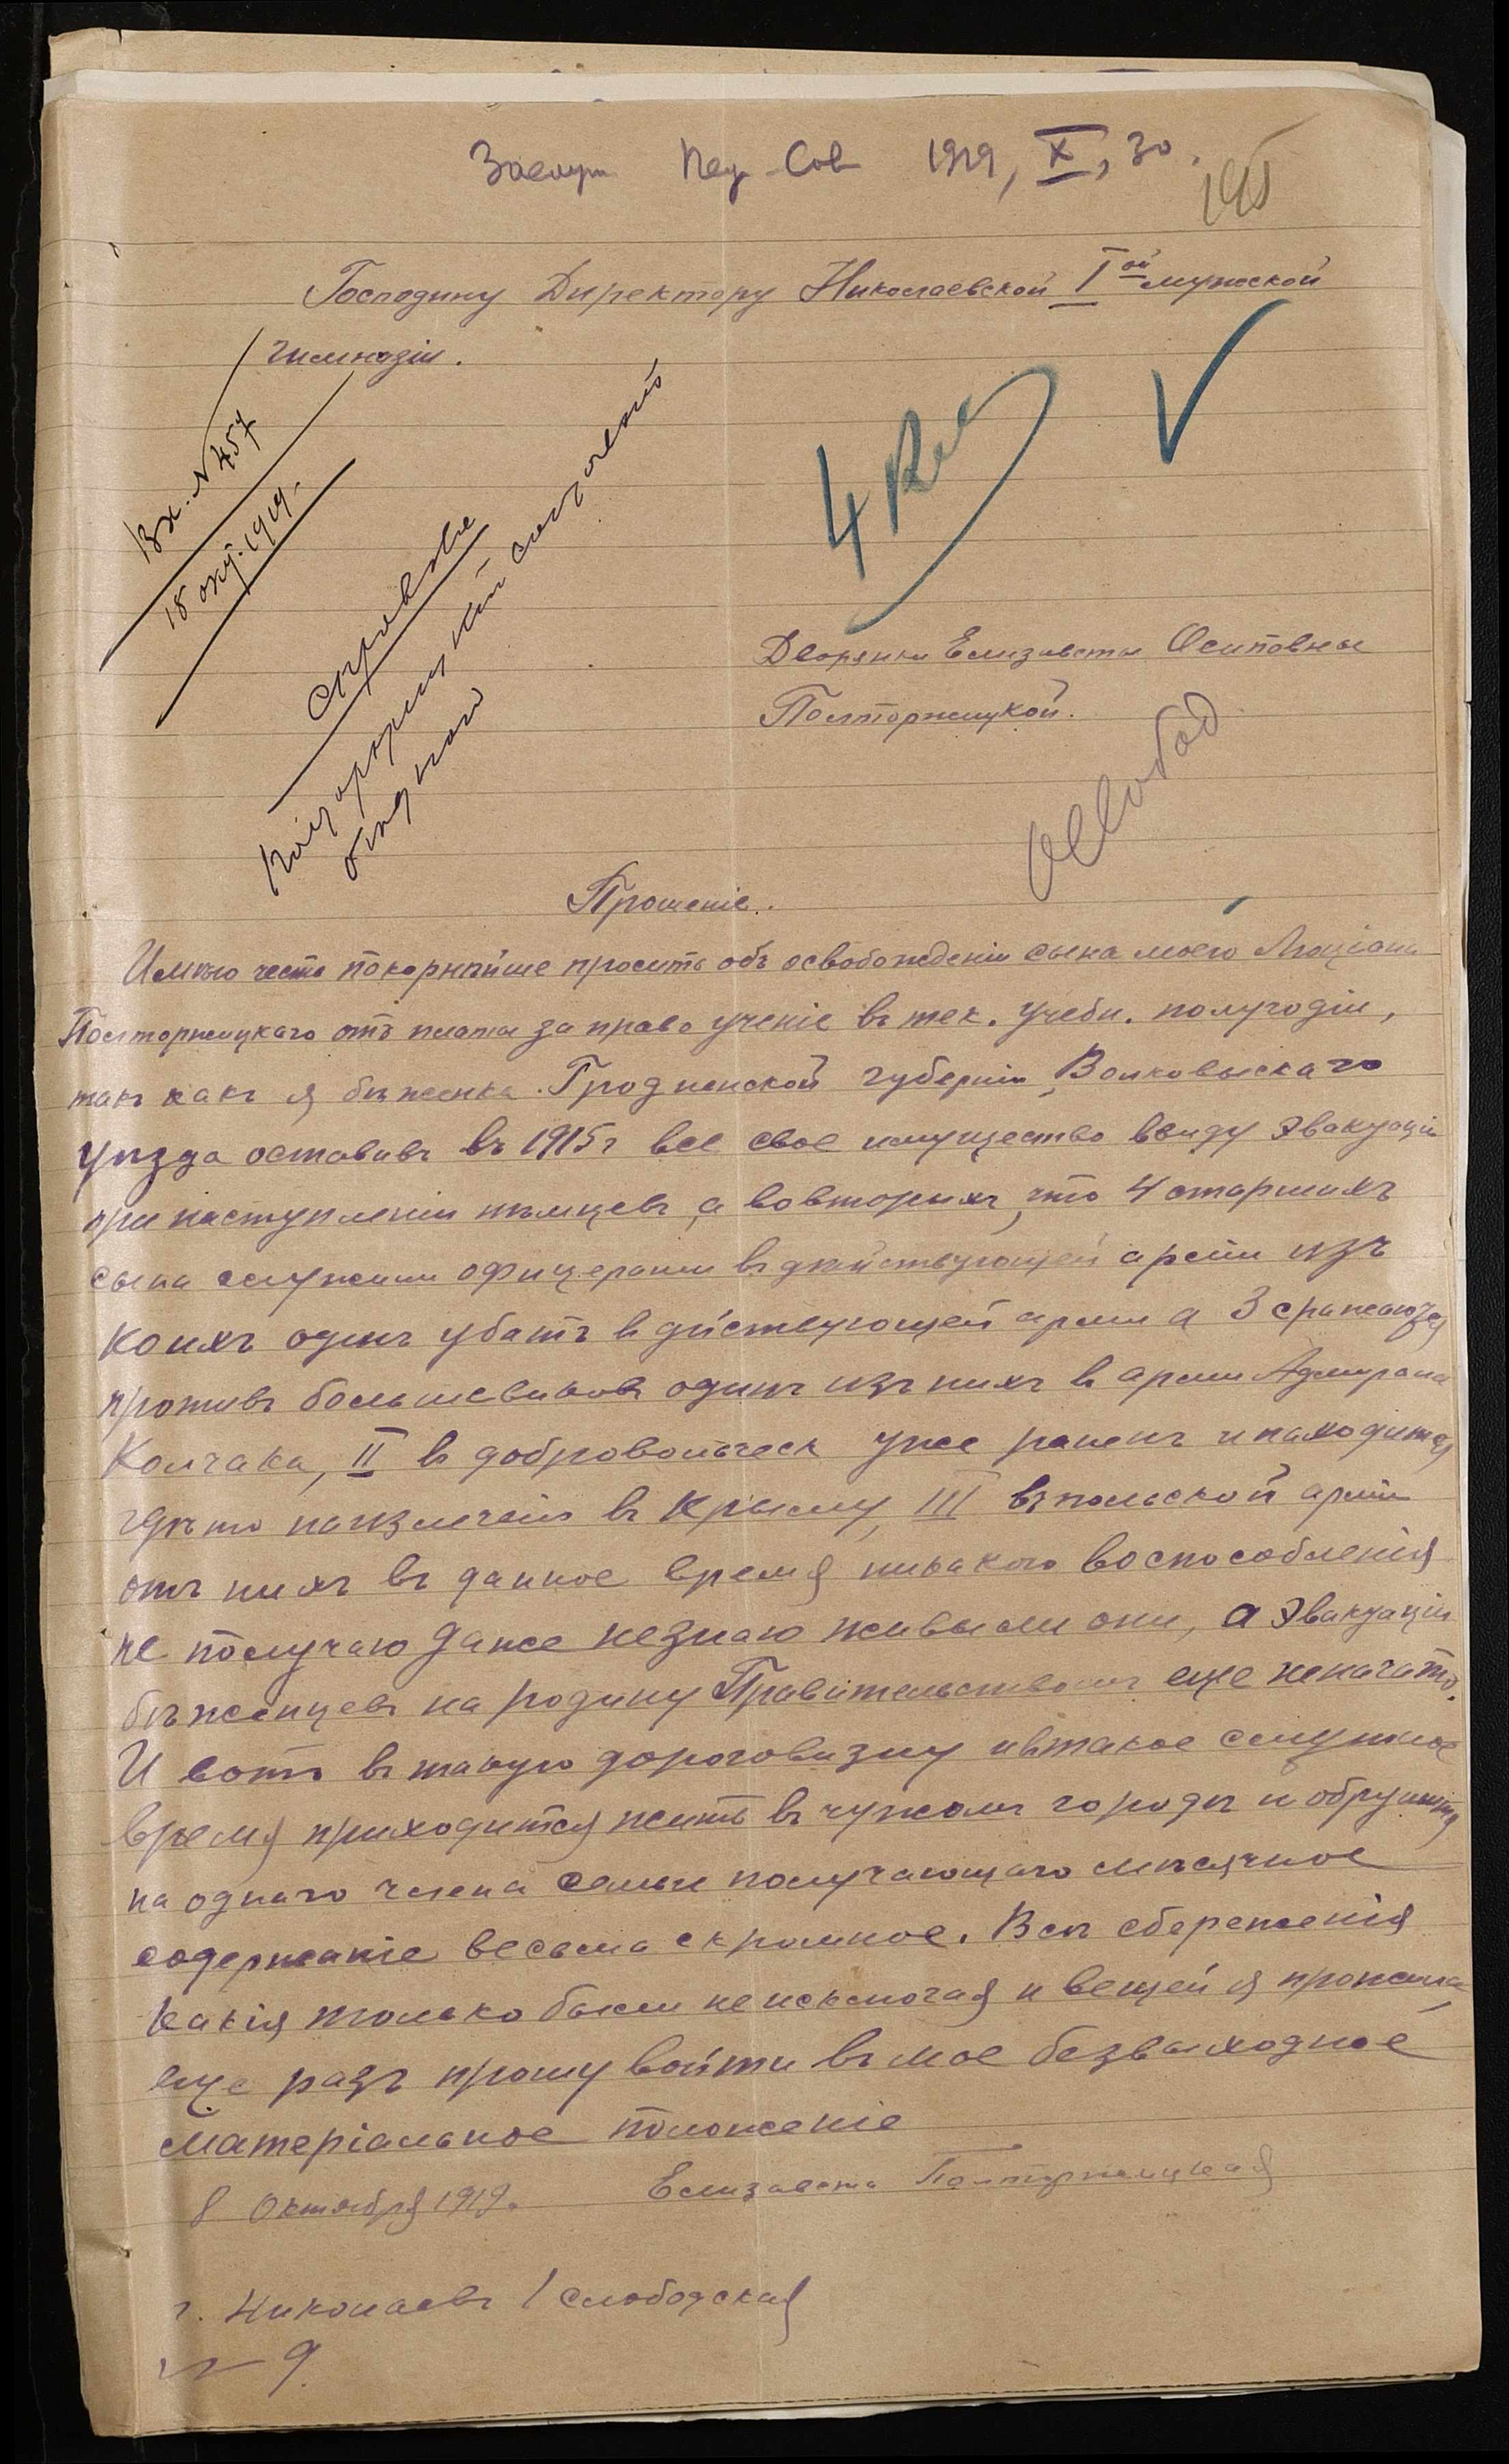 Пед Сов 1919, X, 30.
195
Господину Директору Николаевской Iой мужской
гимназіи.
Вх. № 457
18 окт. 1919.
4 кл
Дворянки Елизаветы Осиповны
Полторжицкой.
освобод
Прошеніе.
Имѣю честь покорнѣйше просить объ освобожденіи сына моего Люціана
Полторжицкаго отъ платы за право ученіе въ тек. учебн. полугодіи,
такъ какъ я бѣженка Гродненской губерніи, Волковыскаго
уѣзда оставивъ въ 1915 г все свое имущество ввиду эвакуаціи
при наступленіи нѣмцевъ, а вовторыхъ, что 4 старшихъ
сына служили офицерами въ дѣйствующей арміи изъ
коихъ одинъ убитъ в дѣствующей арміи а 3 сражаются
противъ большевиковъ одинъ изъ нихъ в арміи Адмирала
Колчака, II в добровольческ уже раненъ и находится
гдѣ то на излѣченіи въ Крыму, III въ польской арміи
отъ нихъ въ данное время никакого воспособленія
не получаю даже незнаю живы ли они, а эвакуаціи
бѣженцевъ на родину Правительствомъ еще неначато.
И вотъ въ такую дороговизну и втакое смутное
время приходится жить въ чужомъ городѣ и обрушится
на однаго члена семьи получающаго мѣсячное
содержаніе весьма скромное. Всѣ сбереженія
какія только были не исключая и вещей я прожила,
еще разъ прошу войти въ мое безвыходное
матеріальное положеніе
8 Октября 1919. Елизавета Полторжицкая
г. Николаевъ / Слободская
№ 9